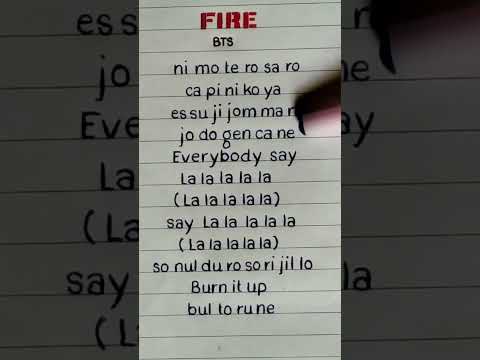 FIRE
BTS
ni mo te ro sa ro
ca pi ni ko ya
es su ji jom ma n
jo do gen ca ne
Everybody say
La la la la la
(La la la la la)
say La la la la la
(La la la la la)
so nul du ro so ri jil lo
Burn it up
bul to ru ne